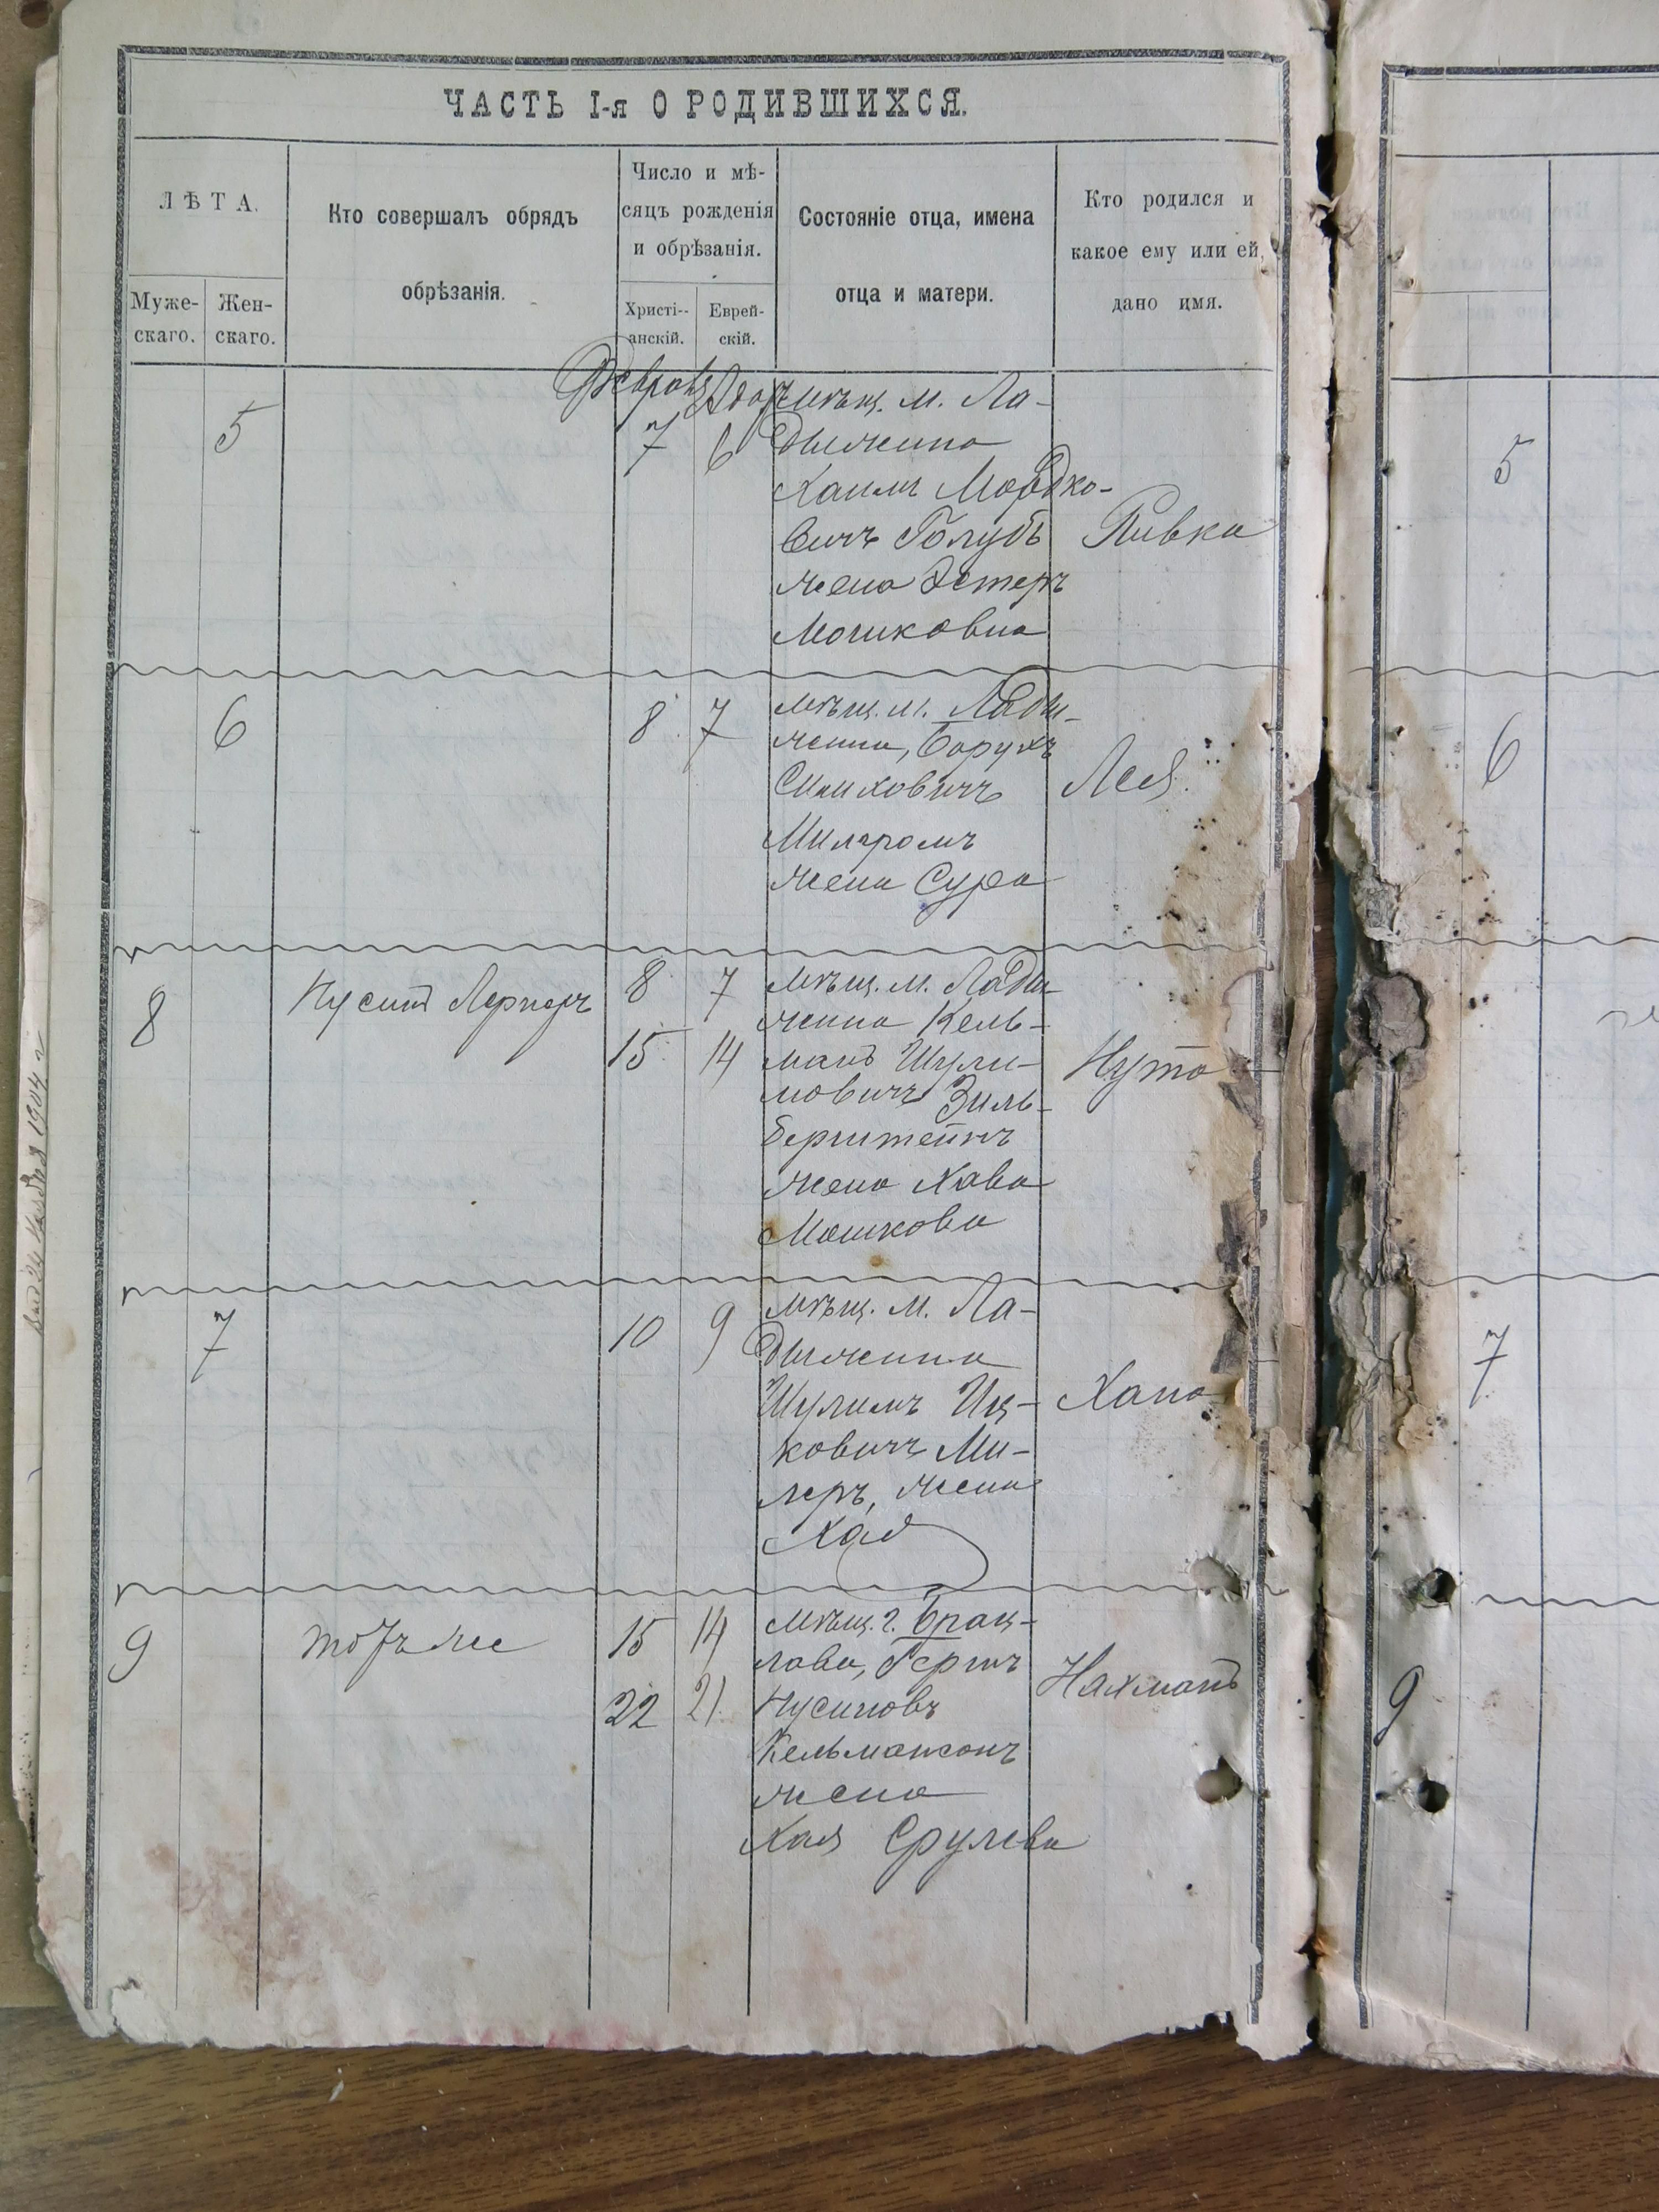 ЧАСТЬ I-я О РОДИВШИХСЯ.
ЛѢТА.
Муже-
скаго.
Жен-
скаго.
Кто совершалъ обрядъ
обрѣзанія.
Число и мѣ-
сяцъ рожденія
и обрѣзанія.
Христі-
анскій.
Еврей-
скій.
Состояніе отца, имена
отца и матери.
Кто родился и
какое ему или ей
дано имя.
Февраль Адаръ
5
7 6
мѣщ. м. Ла-
дыжина
Хаимъ Мордко-
вичъ Голубъ
жена Эстеръ
Мошковна
Ривка
5
6
8 7
мѣщ. м. Лады-
жина, Борухъ
Милгромъ
жена Сура
Лея.
6
8
Нусинъ Лернеръ
8 7
15 14
мѣщ. м. Лады-
жина Кель-
манъ Шули-
мовичъ Зиль-
берштейнъ
жена Хава
Мошкова
Нута
7
10 9
мѣщ. м. Ла-
дыжина
Шулимъ Иц-
ковичъ Ми-
леръ, жена
Хая
Хана
7
9
тотъ же
15 14
22 21
мѣщ. г. Брац-
лава, Гершъ
Нусиновъ
Кельмансонъ
жена
Хая Срулева
Нахманъ
9